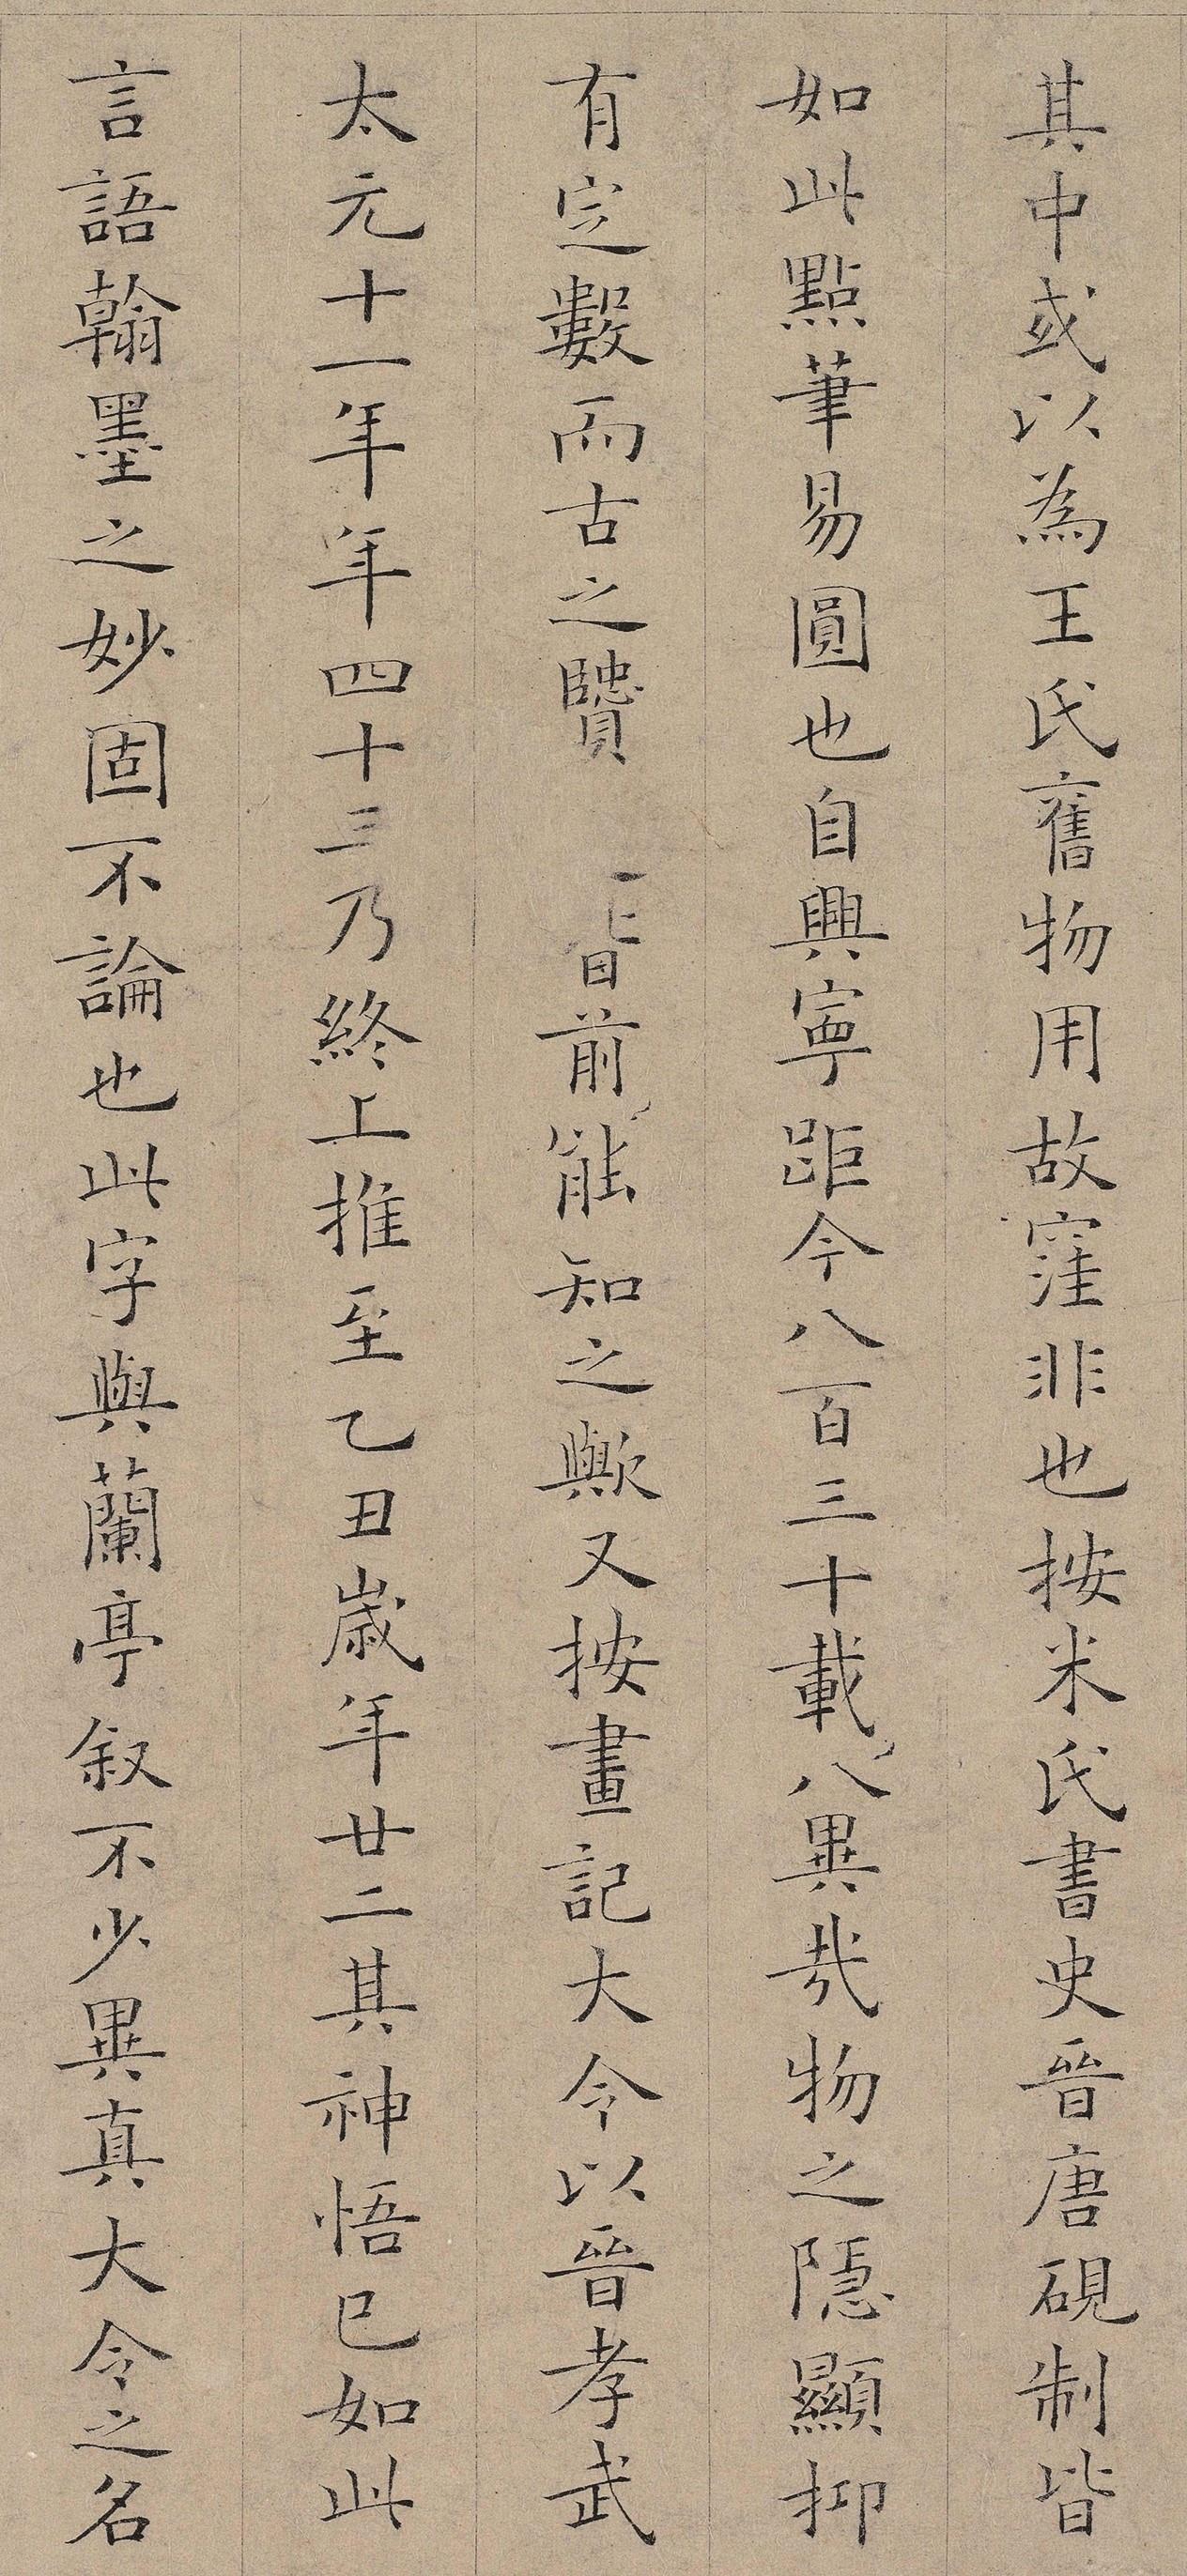 其中或以為王氏舊物用故窪非也按米氏書史晉唐硯制皆
如此點筆易圓也自興寧距今八百三十載八異哉物之隱顯抑
有定數而古之贒前能知之歟又按畫記大令以晉孝武
太元十一年年四十三乃終上推至乙丑歲年廿二其神悟已如此
言語翰墨之妙固不論也此字與蘭亭叙不少異真大令之名